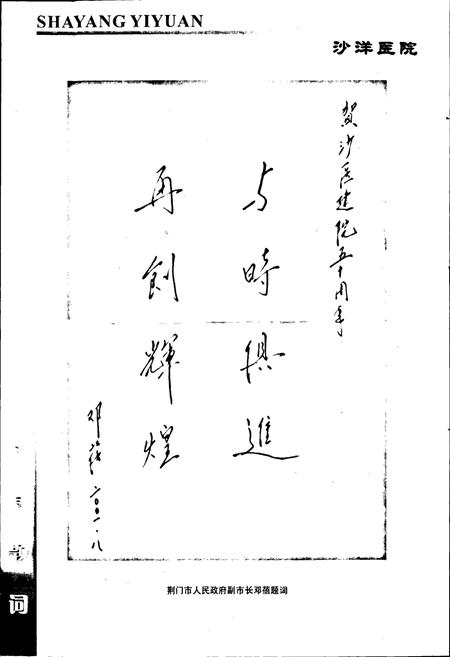 SHAYANG YIYUAN
沙洋医院
贺沙医建院五十周年
与時俱進
再創輝煌
邓蓓 二00一.八
荆门市人民政府副市长邓蓓题词
词